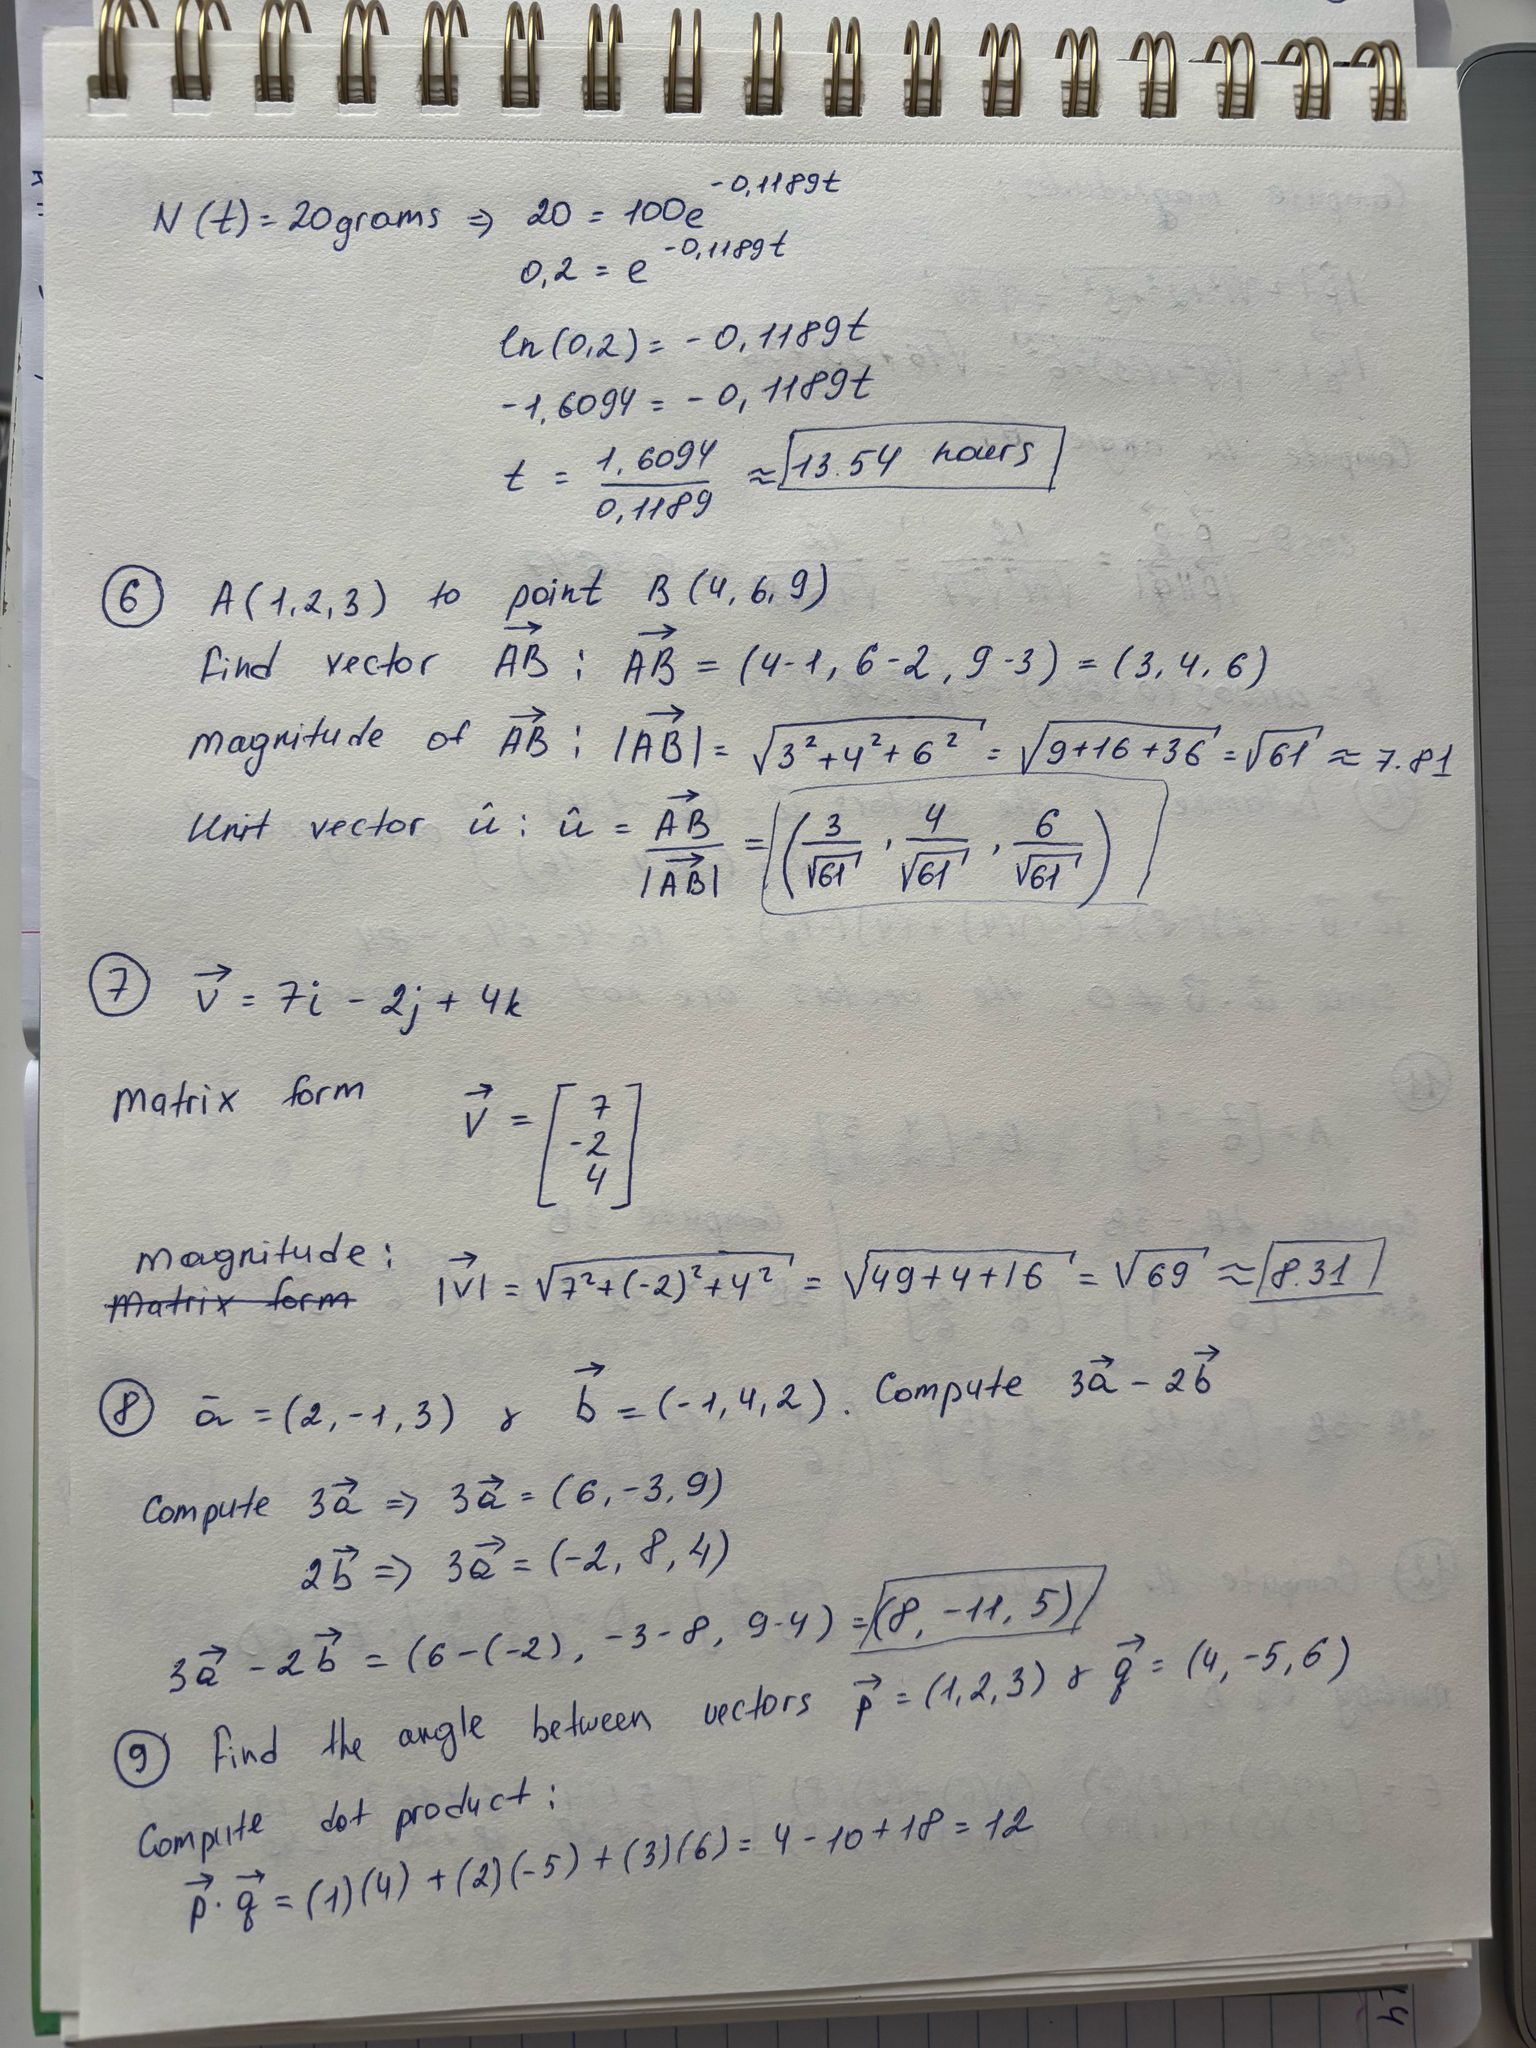 N(t) = 20 grams ⇒ 20 = 100e^(-0,1189t)
0,2 = e^(-0,1189t)
ln(0,2) = -0,1189t
-1,6094 = -0,1189t
t = 1,6094/0,1189 ≈ 13.54 hours
⑥ A(1,2,3) to point B(4,6,9)
Find vector AB⃗ : AB⃗ = (4-1, 6-2, 9-3) = (3, 4, 6)
Magnitude of AB⃗ : |AB⃗| = √(3²+4²+6²) = √(9+16+36) = √61 ≈ 7.81
Unit vector û : û = AB⃗/|AB⃗| = (3/√61, 4/√61, 6/√61)
⑦ v⃗ = 7i - 2j + 4k
Matrix form v⃗ = [7 -2 4]
Magnitude: |v⃗| = √(7²+(-2)²+4²) = √(49+4+16) = √69 ≈ 8.31
Matrix form
⑧ ā = (2, -1, 3) & b⃗ = (-1, 4, 2). Compute 3a⃗ - 2b⃗
Compute 3a⃗ ⇒ 3a⃗ = (6, -3, 9)
2b⃗ ⇒ 3a⃗ = (-2, 8, 4)
3a⃗ - 2b⃗ = (6-(-2), -3-8, 9-4) = (8, -11, 5)
⑨ Find the angle between vectors p⃗ = (1,2,3) & q⃗ = (4, -5, 6)
Compute dot product:
p⃗ · q⃗ = (1)(4) + (2)(-5) + (3)(6) = 4 - 10 + 18 = 12